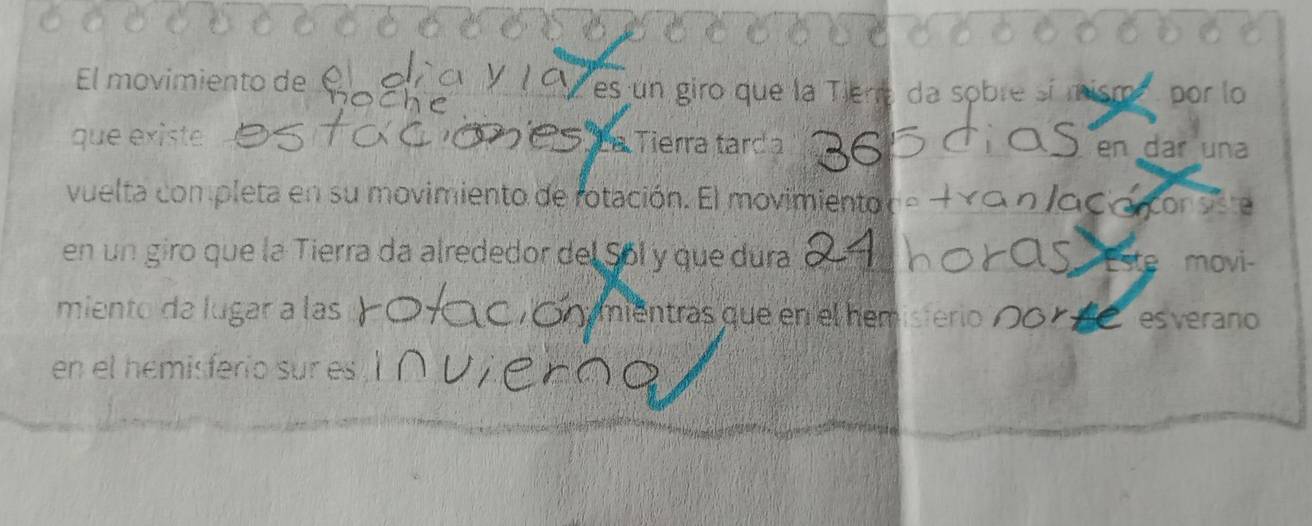 El movimiento de el dia y la es un giro que la Tierra da sobre sí misma por lo
noche
que existe estaciones La Tierra tarda 365 dias en dar una
vuelta completa en su movimiento de rotación. El movimiento de tranlación consiste
en un giro que la Tierra da alrededor del Sol y que dura 24 horas Este movi-
miento da lugar a las rotación, mientras que en el hemisferio norte es verano
en el hemisferio sur es invierno